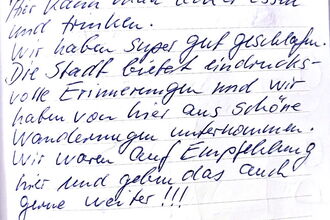 Hier kann man lecker essen
und trinken.
Wir haben super gut geschlafen.
Die Stadt bietet eindrucks-
volle Erinnerungen und wir
haben von hier aus schöne
Wanderungen unternommen.
Wir waren auf Empfehlung
hier und geben das auch
gerne weiter!!!